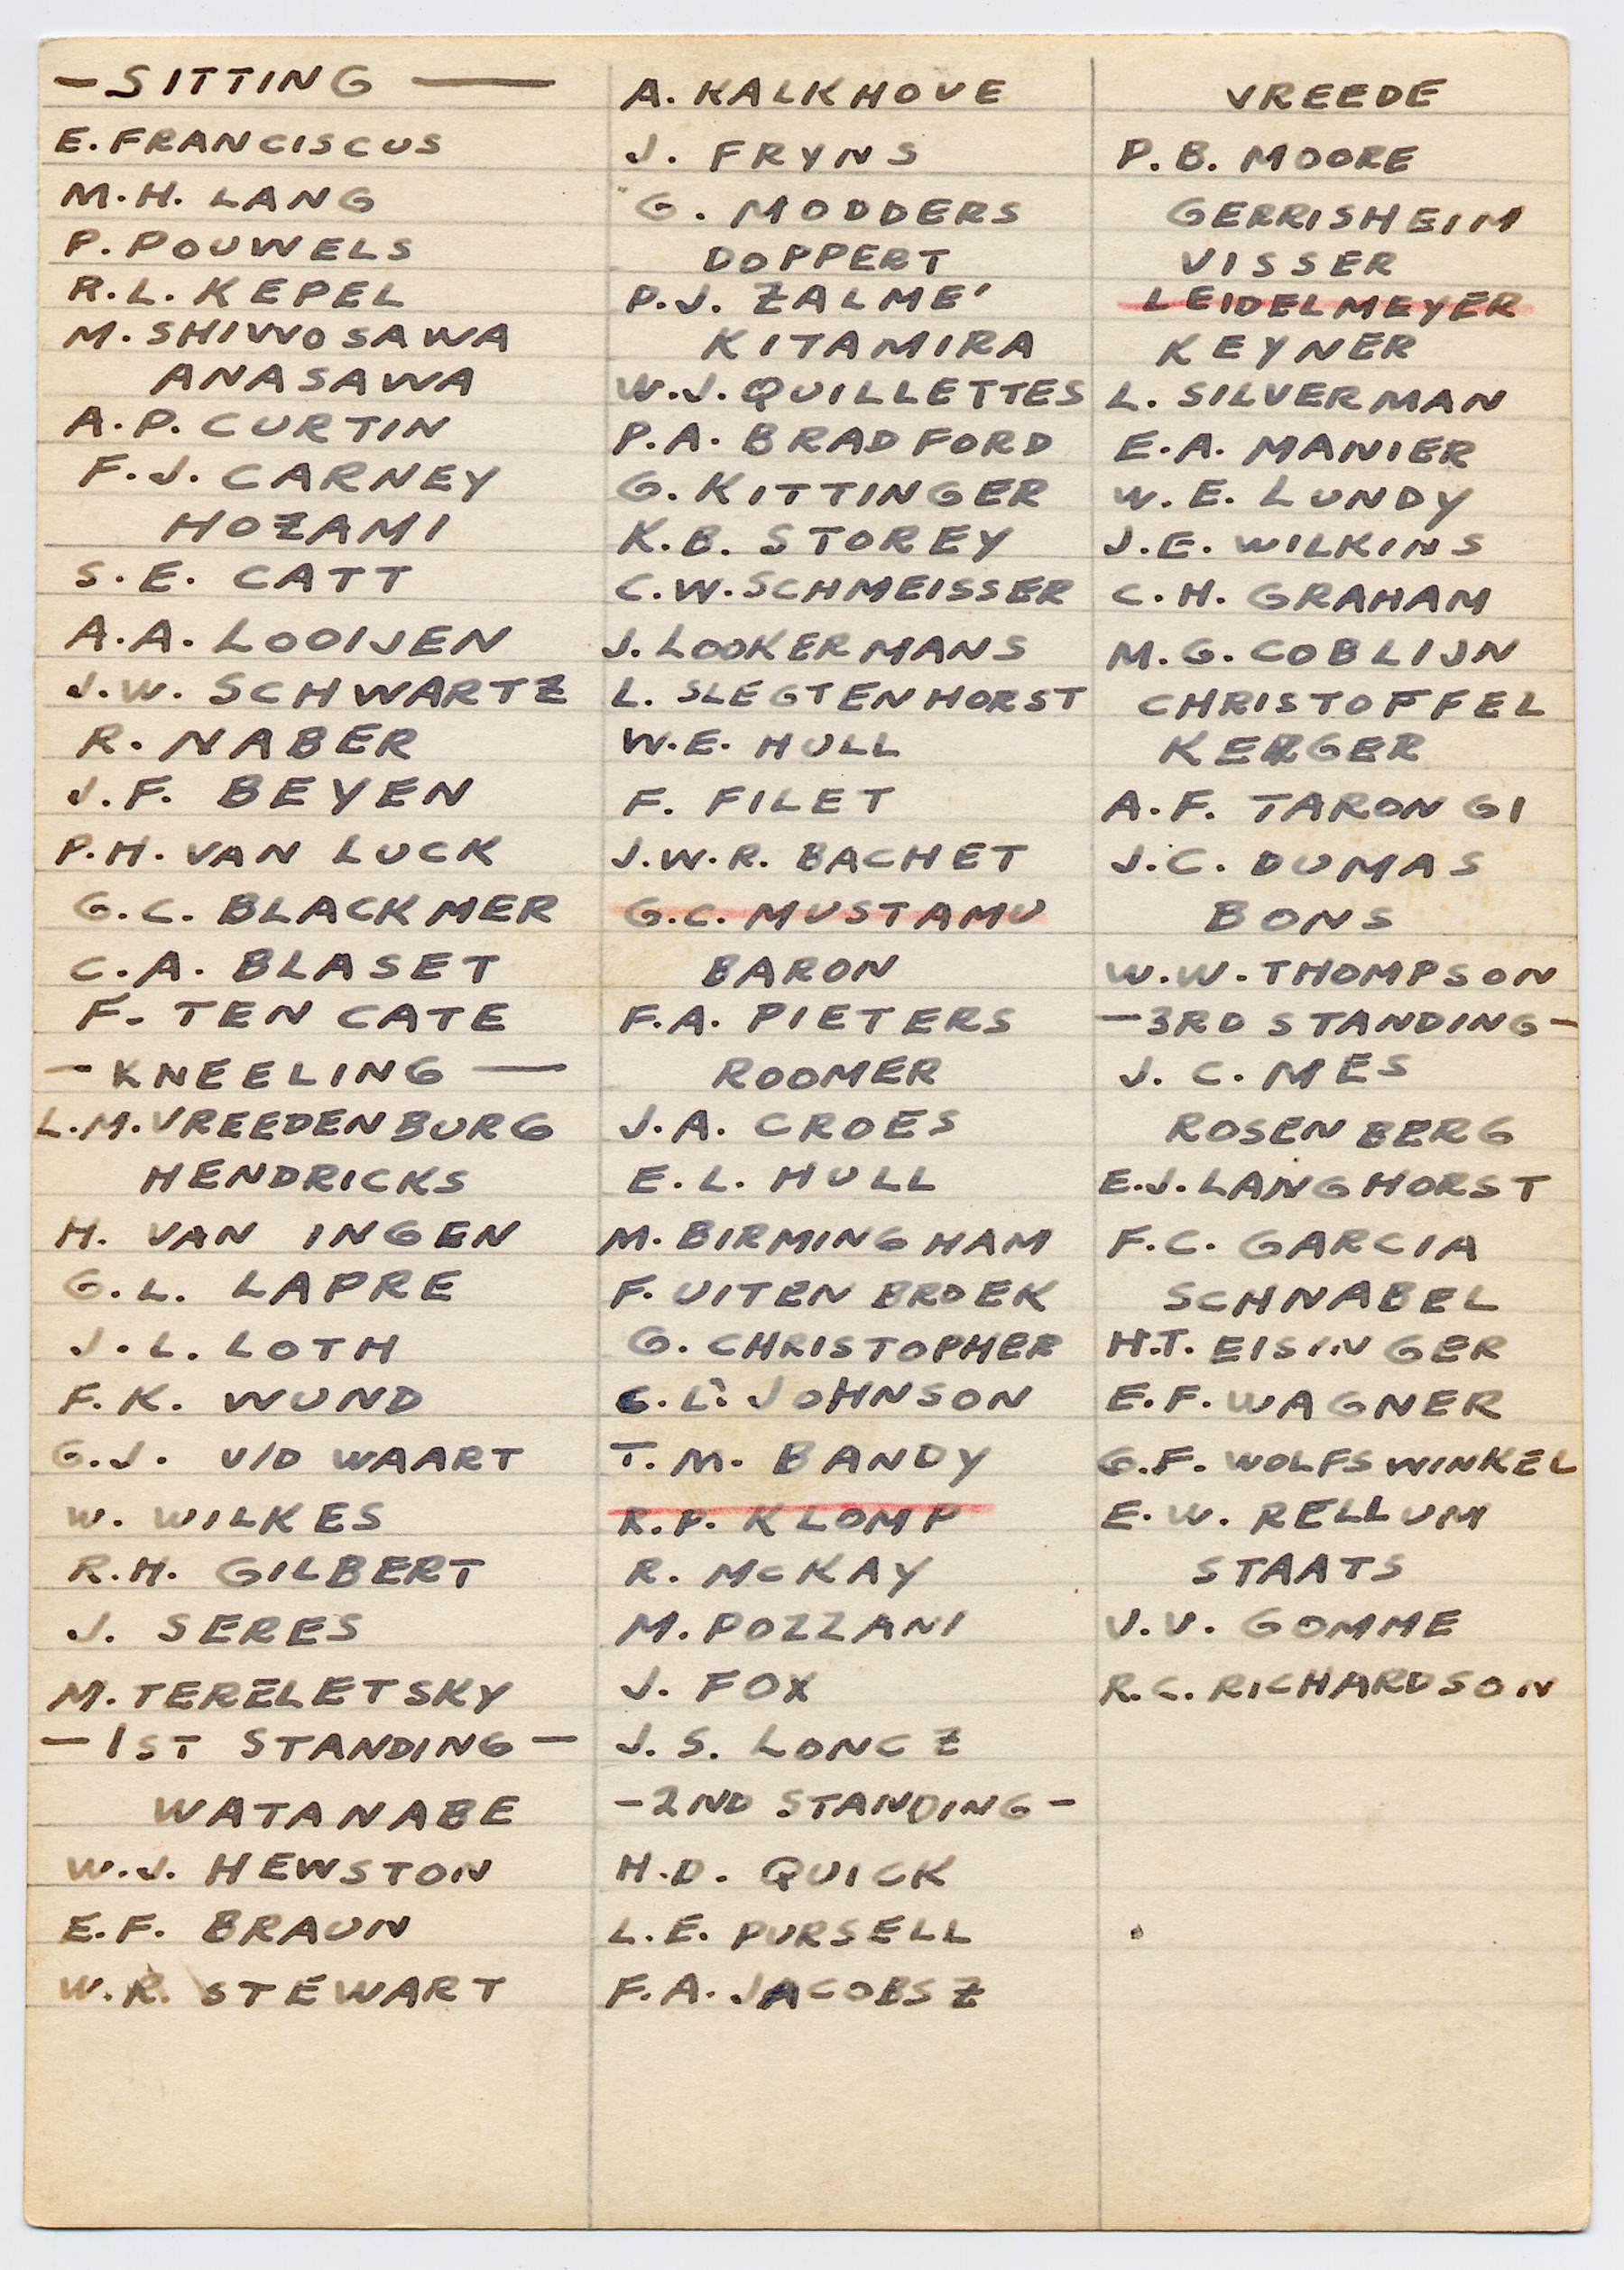 — SITTING —
E. FRANCISCUS
M.H. LANG
P. POUWELS
R.L. KEPEL
M. SHIWOSAWA
ANASAWA
A.P. CURTIN
F.J. CARNEY
HOZAMI
S.E. CATT
A.A. LOOIJEN
J.W. SCHWARTZ
R. NABER
J.F. BEYEN
P.H. VAN LUCK
G.C. BLACKMER
C.A. BLASET
F. TEN CATE
— KNEELING —
L.M. VREEDENBURG
HENDRICKS
H. VAN INGEN
G.L. LAPRE
J.L. LOTH
F.K. WUND
G.J. V/D WAART
W. WILKES
R.H. GILBERT
J. SERES
M. TERELETSKY
— 1ST STANDING —
WATANABE
W.J. HEWSTON
E.F. BRAUN
W.R. STEWART
A. KALKHOVE
J. FRYNS
G. MODDERS
DOPPERT
P.J. ZALME'
KITAMIRA
W.J. QUILLETTES
P.A. BRADFORD
G. KITTINGER
K.B. STOREY
C.W. SCHMEISSER
J. LOOKERMANS
L. SLEGTENHORST
W.E. HULL
F. FILET
J.W.R. BACHET
G.C. MUSTAMU
BARON
F.A. PIETERS
ROOMER
J.A. CROES
E.L. HULL
M. BIRMINGHAM
F. UITENBROEK
G. CHRISTOPHER
G.L. JOHNSON
T.M. BANDY
R.P. KLOMP
R. McKAY
M. POZZANI
J. FOX
J.S. LONCZ
— 2ND STANDING —
H.D. QUICK
L.E. PURSELL
F.A. JACOBSZ
VREEDE
P.B. MOORE
GERRISHEIM
VISSER
LEIDELMEYER
KEYNER
L. SILVERMAN
E.A. MANIER
W.E. LUNDY
J.E. WILKINS
C.H. GRAHAM
M.G. COBLIJN
CHRISTOFFEL
KERGER
A.F. TARONGI
J.C. DUMAS
BONS
W.W. THOMPSON
— 3RD STANDING —
J.C. MES
ROSENBERG
E.J. LANGHORST
F.C. GARCIA
SCHNABEL
H.T. EISINGER
E.F. WAGNER
G.F. WOLFSWINKEL
E.W. RELLUM
STAATS
V.V. GOMME
R.C. RICHARDSON